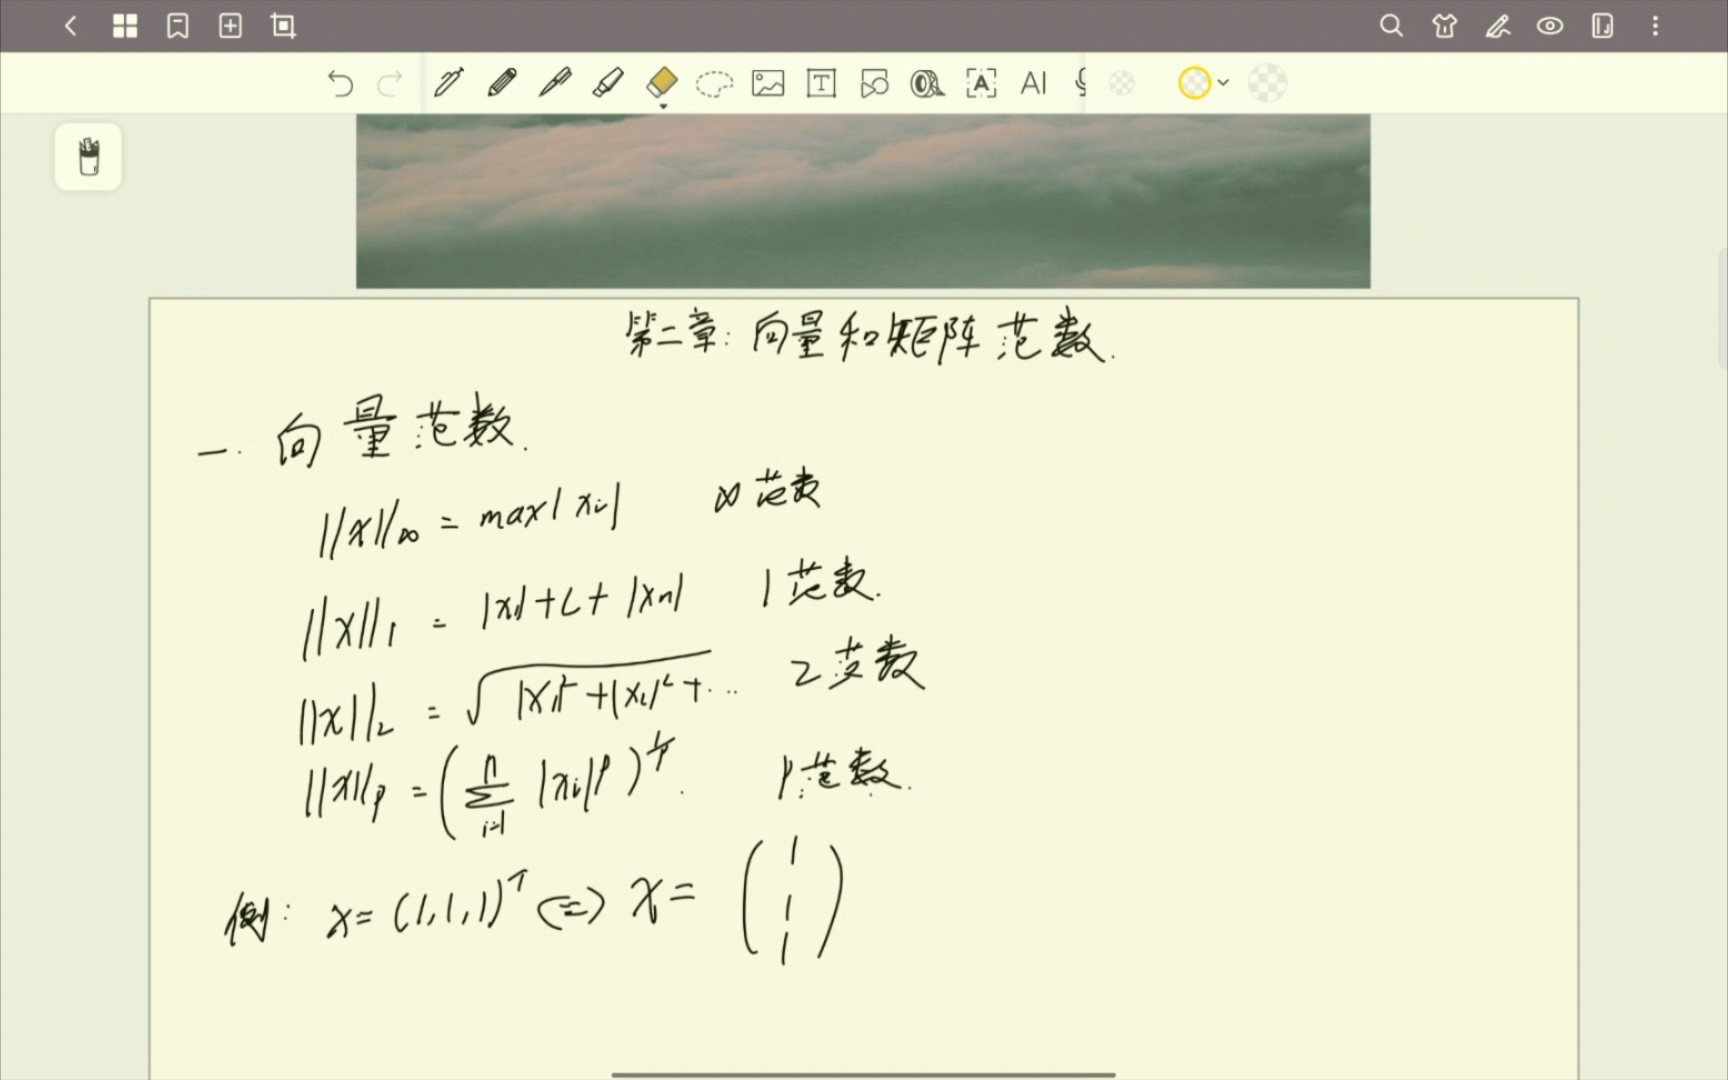 AI
第二章:向量和矩阵范数.
一.向量范数.
||x||∞ = max|xi| ∞范数
||x||₁ = |x₁|+L+|xn| 1范数.
||x||₂ = √|x₁|²+|x₂|²+... 2范数
||x||p = (∑ⁿᵢ₌₁ |xi|ᵖ)^1/p. p范数.
例: x=(1,1,1)ᵀ <=> x= (1 1 1)